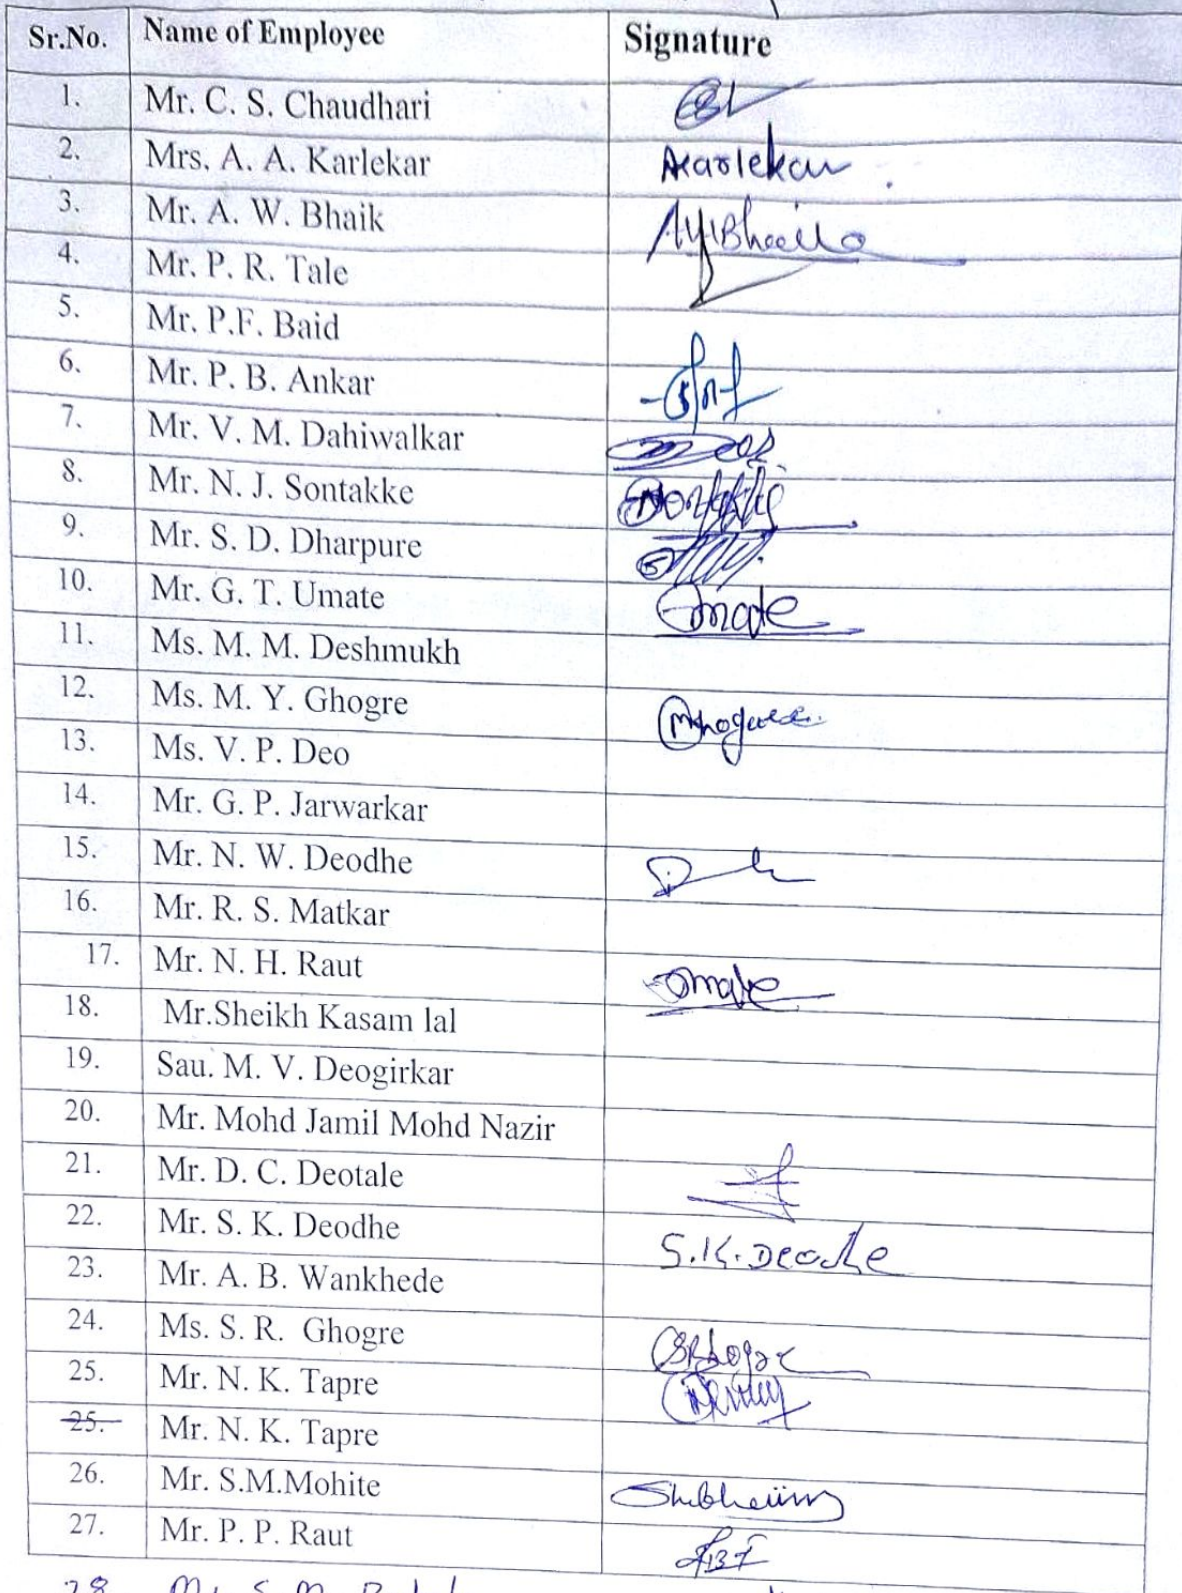 Sr.No. Name of Employee Signature
1. Mr. C. S. Chaudhari
2. Mrs. A. A. Karlekar Akarlekar
3. Mr. A. W. Bhaik
4. Mr. P. R. Tale
5. Mr. P.F. Baid
6. Mr. P. B. Ankar
7. Mr. V. M. Dahiwalkar
8. Mr. N. J. Sontakke
9. Mr. S. D. Dharpure
10. Mr. G. T. Umate
11. Ms. M. M. Deshmukh
12. Ms. M. Y. Ghogre
13. Ms. V. P. Deo
14. Mr. G. P. Jarwarkar
15. Mr. N. W. Deodhe
16. Mr. R. S. Matkar
17. Mr. N. H. Raut
18. Mr.Sheikh Kasam lal
19. Sau. M. V. Deogirkar
20. Mr. Mohd Jamil Mohd Nazir
21. Mr. D. C. Deotale
22. Mr. S. K. Deodhe S.K. Deodhe
23. Mr. A. B. Wankhede
24. Ms. S. R. Ghogre
25. Mr. N. K. Tapre
25. Mr. N. K. Tapre
26. Mr. S.M.Mohite
27. Mr. P. P. Raut
28